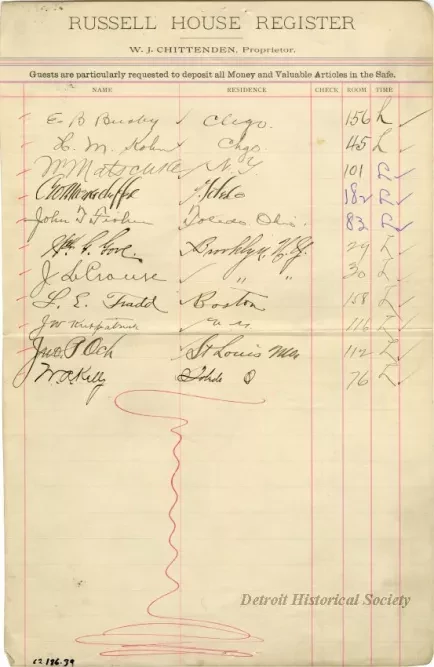 RUSSELL HOUSE REGISTER
W. J. CHITTENDEN, Proprietor.
Guests are particularly requested to deposit all Money and Valuable Articles in the Safe.
NAME RESIDENCE CHECK ROOM TIME
E B Busby Chgo. 156 L
H. M. Kohn Chgo 45 L
W Matschke N.Y. 101
Toledo 182
John T Fisher Toledo Ohio. 82
Wm G. Gove. Brooklyn, N.Y. 29 L
J. L. Crouse " " 30 L
L. E. Tradd Boston 158 L
JW Kirkpatrick 116 L
Jno. P. Och St Louis 112 L
W R Kelly Toledo O 76 L
Detroit Historical Society
12.136.39